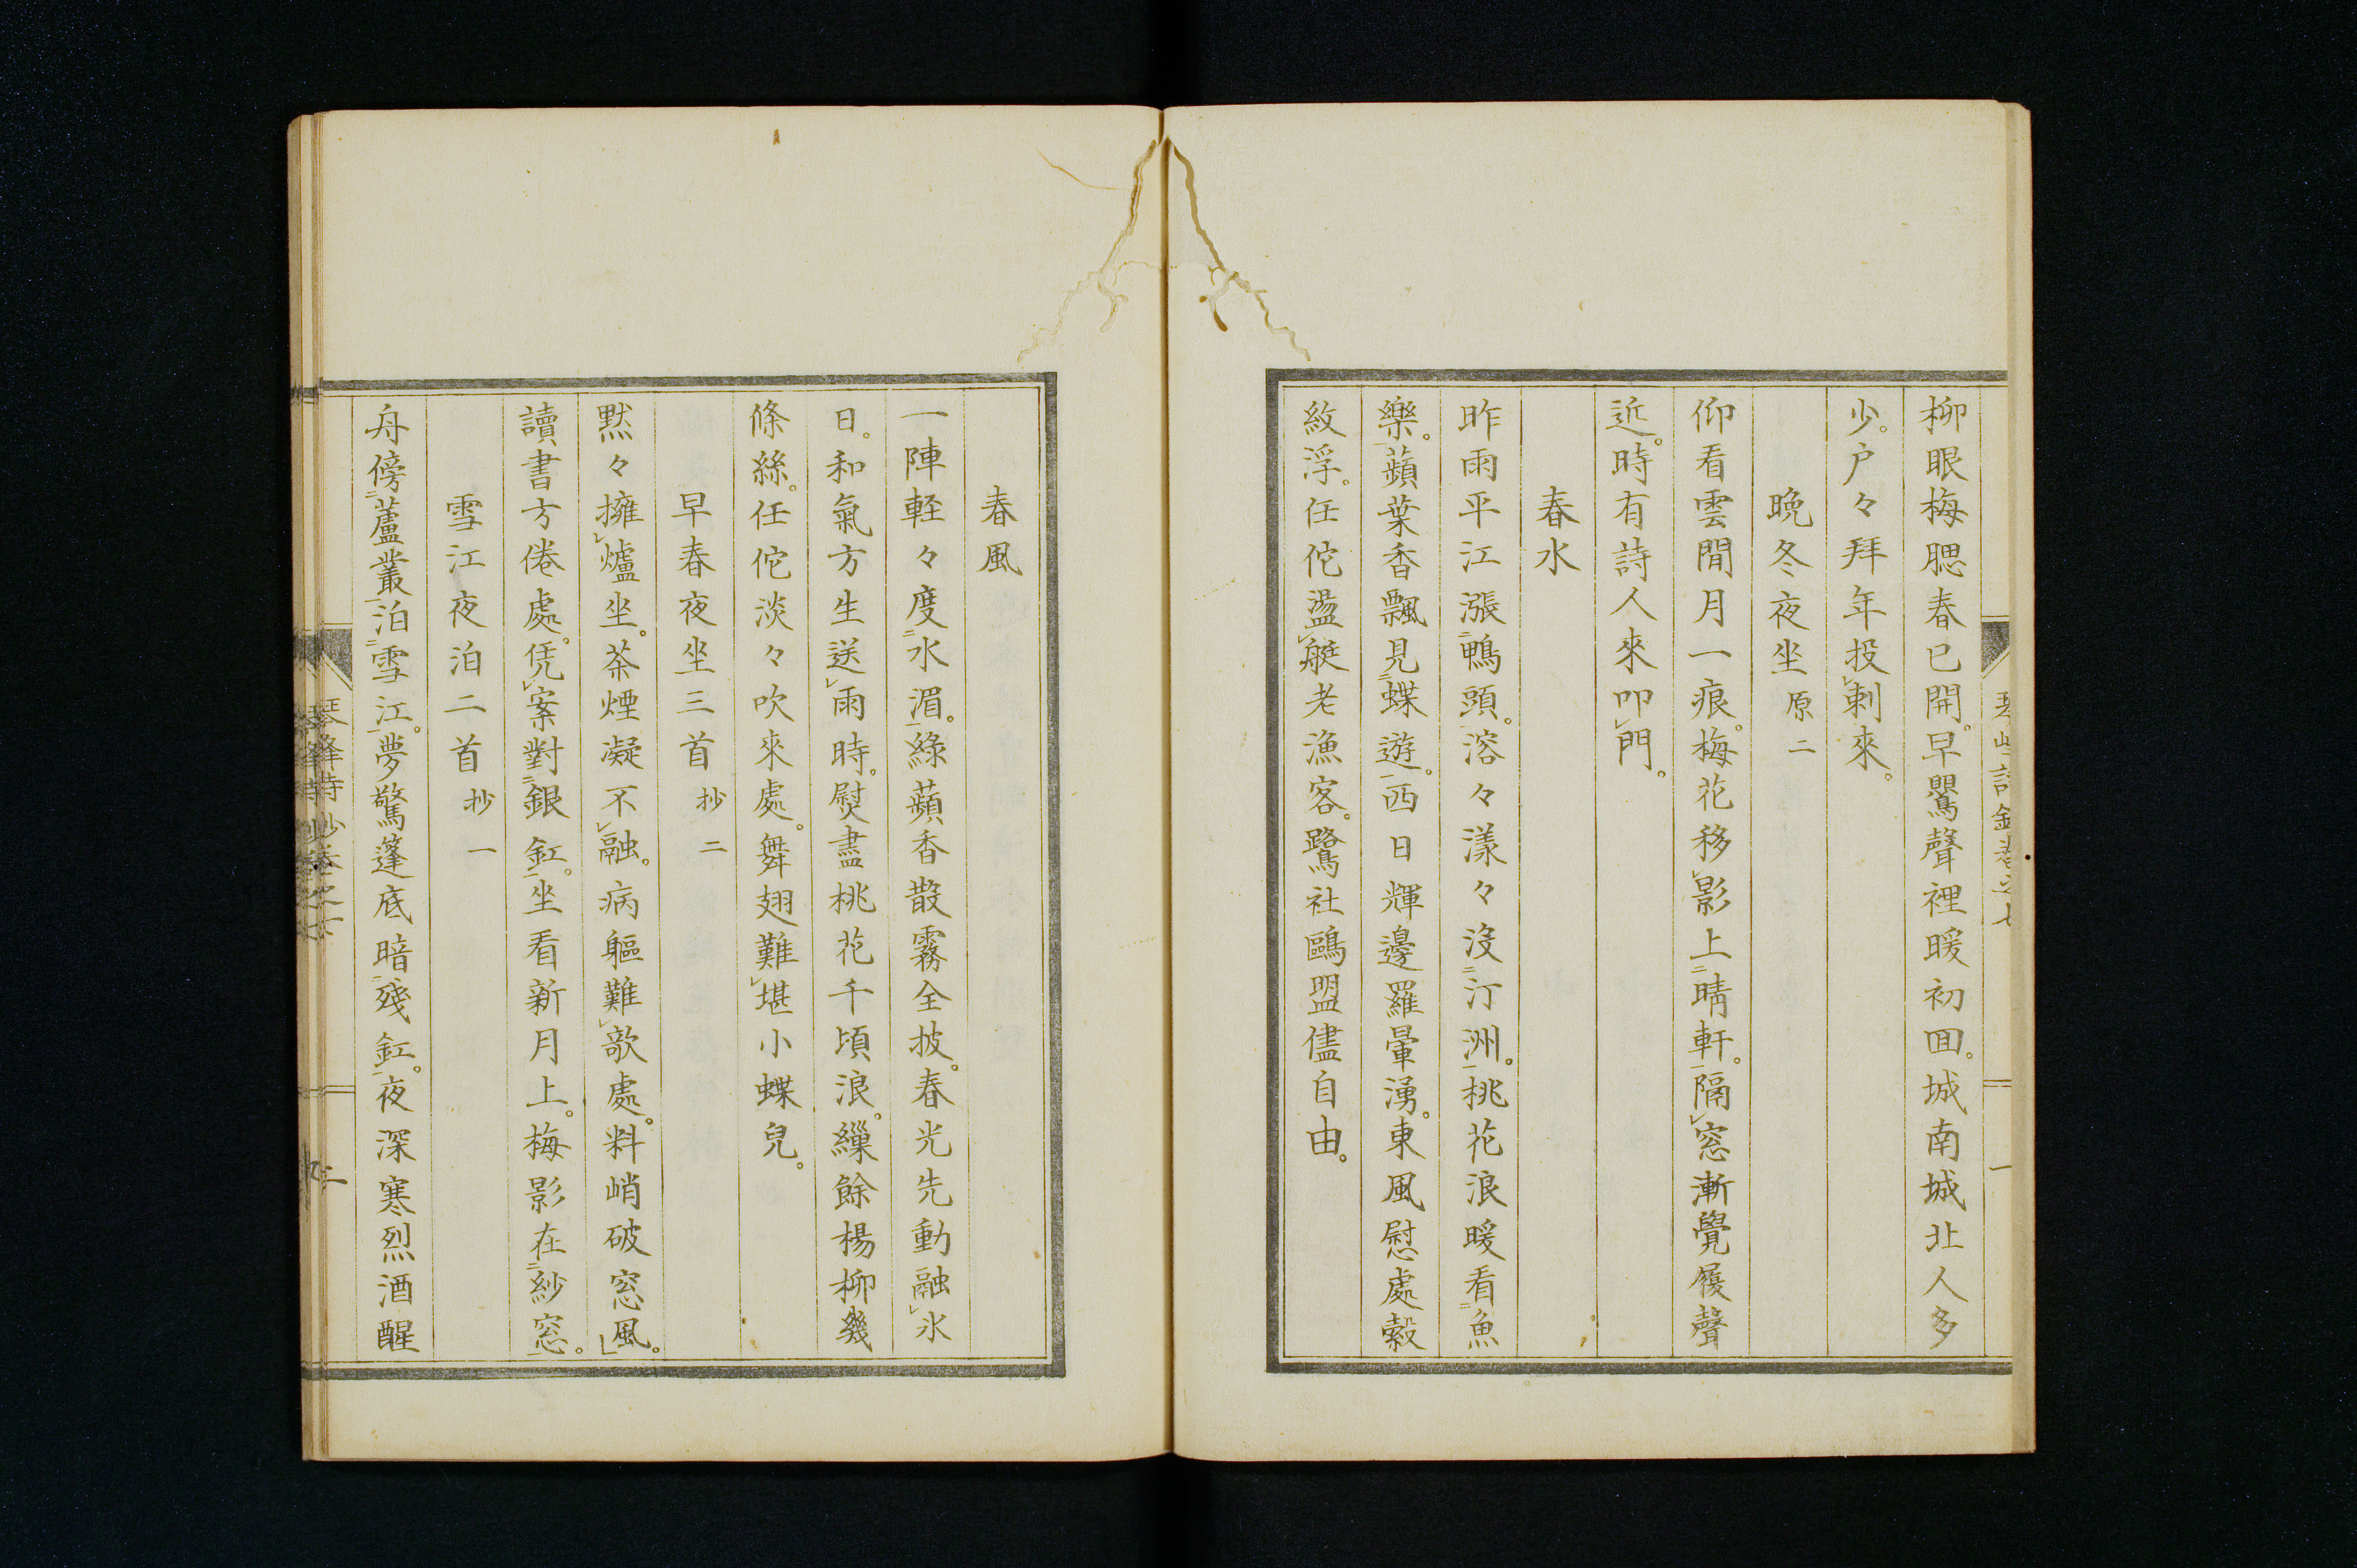 柳眼梅腮春已開。早鸎聲裡暖初囬。城南城北人多
少。户々拜年投刺來。
晩冬夜坐 原二
仰看雲間月一痕。梅花移影上晴軒。隔窓漸覺履聲
近。時有詩人來叩門。
春水
昨雨平江漲鴨頭。溶々漾々沒汀洲。桃花浪暖看魚
樂。蘋葉香飄見蝶遊。西日輝邊羅暈湧。東風慰處縠
紋浮。任佗盪艇老漁客。鷺社鷗盟儘自由。
春風
一陣軽々度水湄。綠蘋香散霧全披。春光先動融氷
日。和氣方生送雨時。熨盡桃花千頃浪。繅餘楊柳幾
條絲。任佗淡々吹來處。舞翅難堪小蝶兒。
早春夜坐三首 抄二
黙々擁爐坐。茶煙凝不融。病軀難敧處。料峭破窓風。
讀書方倦處。凭案對銀釭。坐看新月上。梅影在紗窓。
雪江夜泊二首 抄一
舟傍蘆叢泊雪江。夢驚篷底暗殘釭。夜深寒烈酒醒